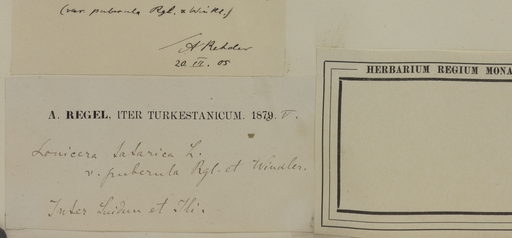 (var. puberula Rgl. & Winkl.)
A Rehder
20. IX. 05
A. REGEL. ITER TURKESTANICUM. 1879. V.
Lonicera tatarica L.
v. puberula Rgl. et Winkler.
Inter Suidun et Ili.
HERBARIUM REGIUM MONA